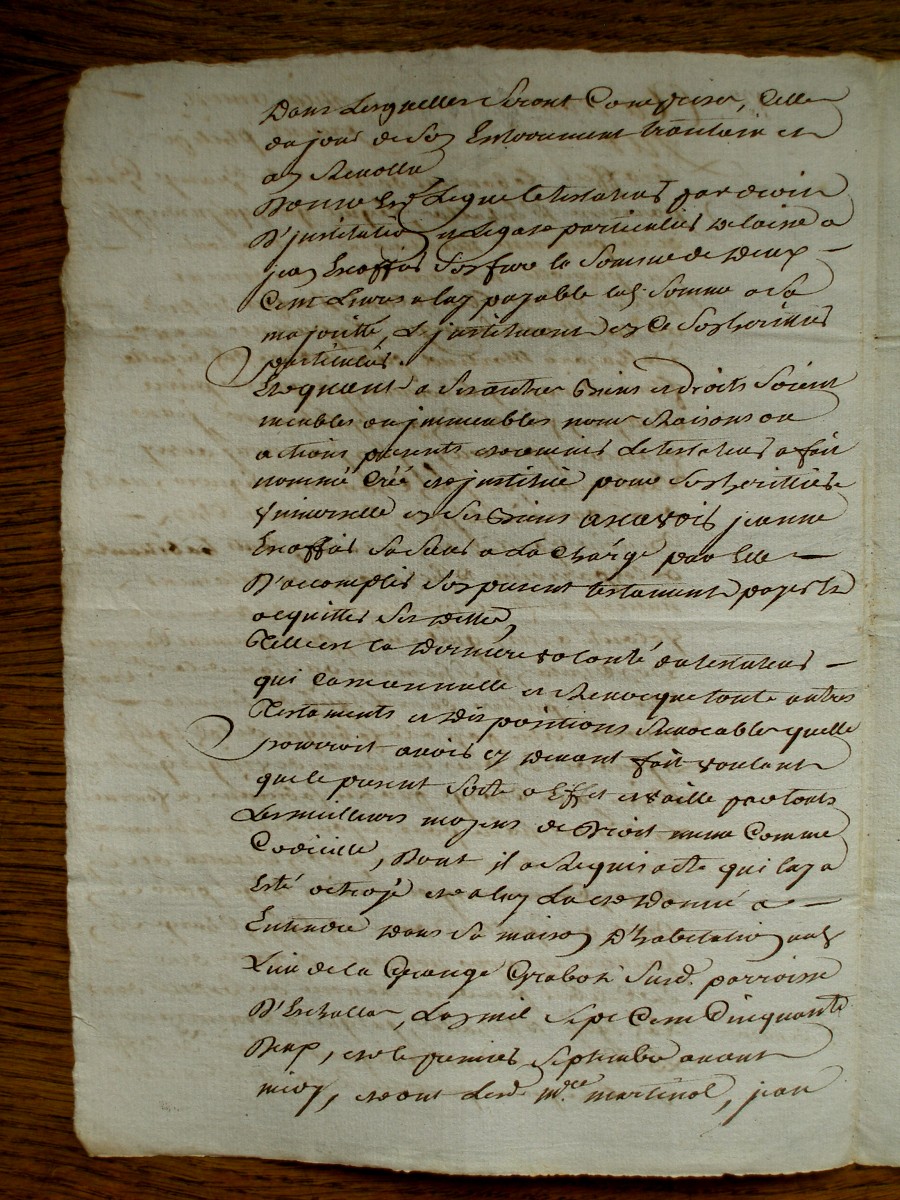 Dans Lesquelles Seront Comprises, Celle
du jour de Son Enterrement trantain et
an Revollu
Donne et Legue le testateur par droit
D'justitution et Legats particulier Delaisse a
jean son frere la Somme de Deux
Cent Livres a luy payable lad. Somme a Sa
majoritté, L'justituant en Ce Son heritier
particulier.
Et quant a Ses autres Biens et droits Soient
meubles ou jmmeubles noms Raisons ou
actions presents et avenirs Le testateur a fait
nommé Créé et justitué pour Son herittiere
Vniverselle en Ses Biens a Scavoir jeanne
Sa Sœur a La Charge par Elle
D'accomplir Son present testament payer et
acquitter Ses Dettes,
Telle est la Derniere volonté du testateur
qui Casse annulle et Revocque toute autres
Testaments et Dispositions Revocables quelle
pourroit avoir cy Devant fait voulant
que le present Sorte a Effet et vaille par touts
Les meilleurs moyens de Droit meme Comme
Codicille, Dont il a Requis acte qui luy a
Esté octroyé et a luy Lu et Donné a
Entendre Dans Sa maison D'habitation aud.
Lieu de la Grange Susd. parroisse
D'Eschallas, L'an mil Sept Cent Cinquante
Deux, et le premier Septembre avant
midy, et ont Led. martinol, jean